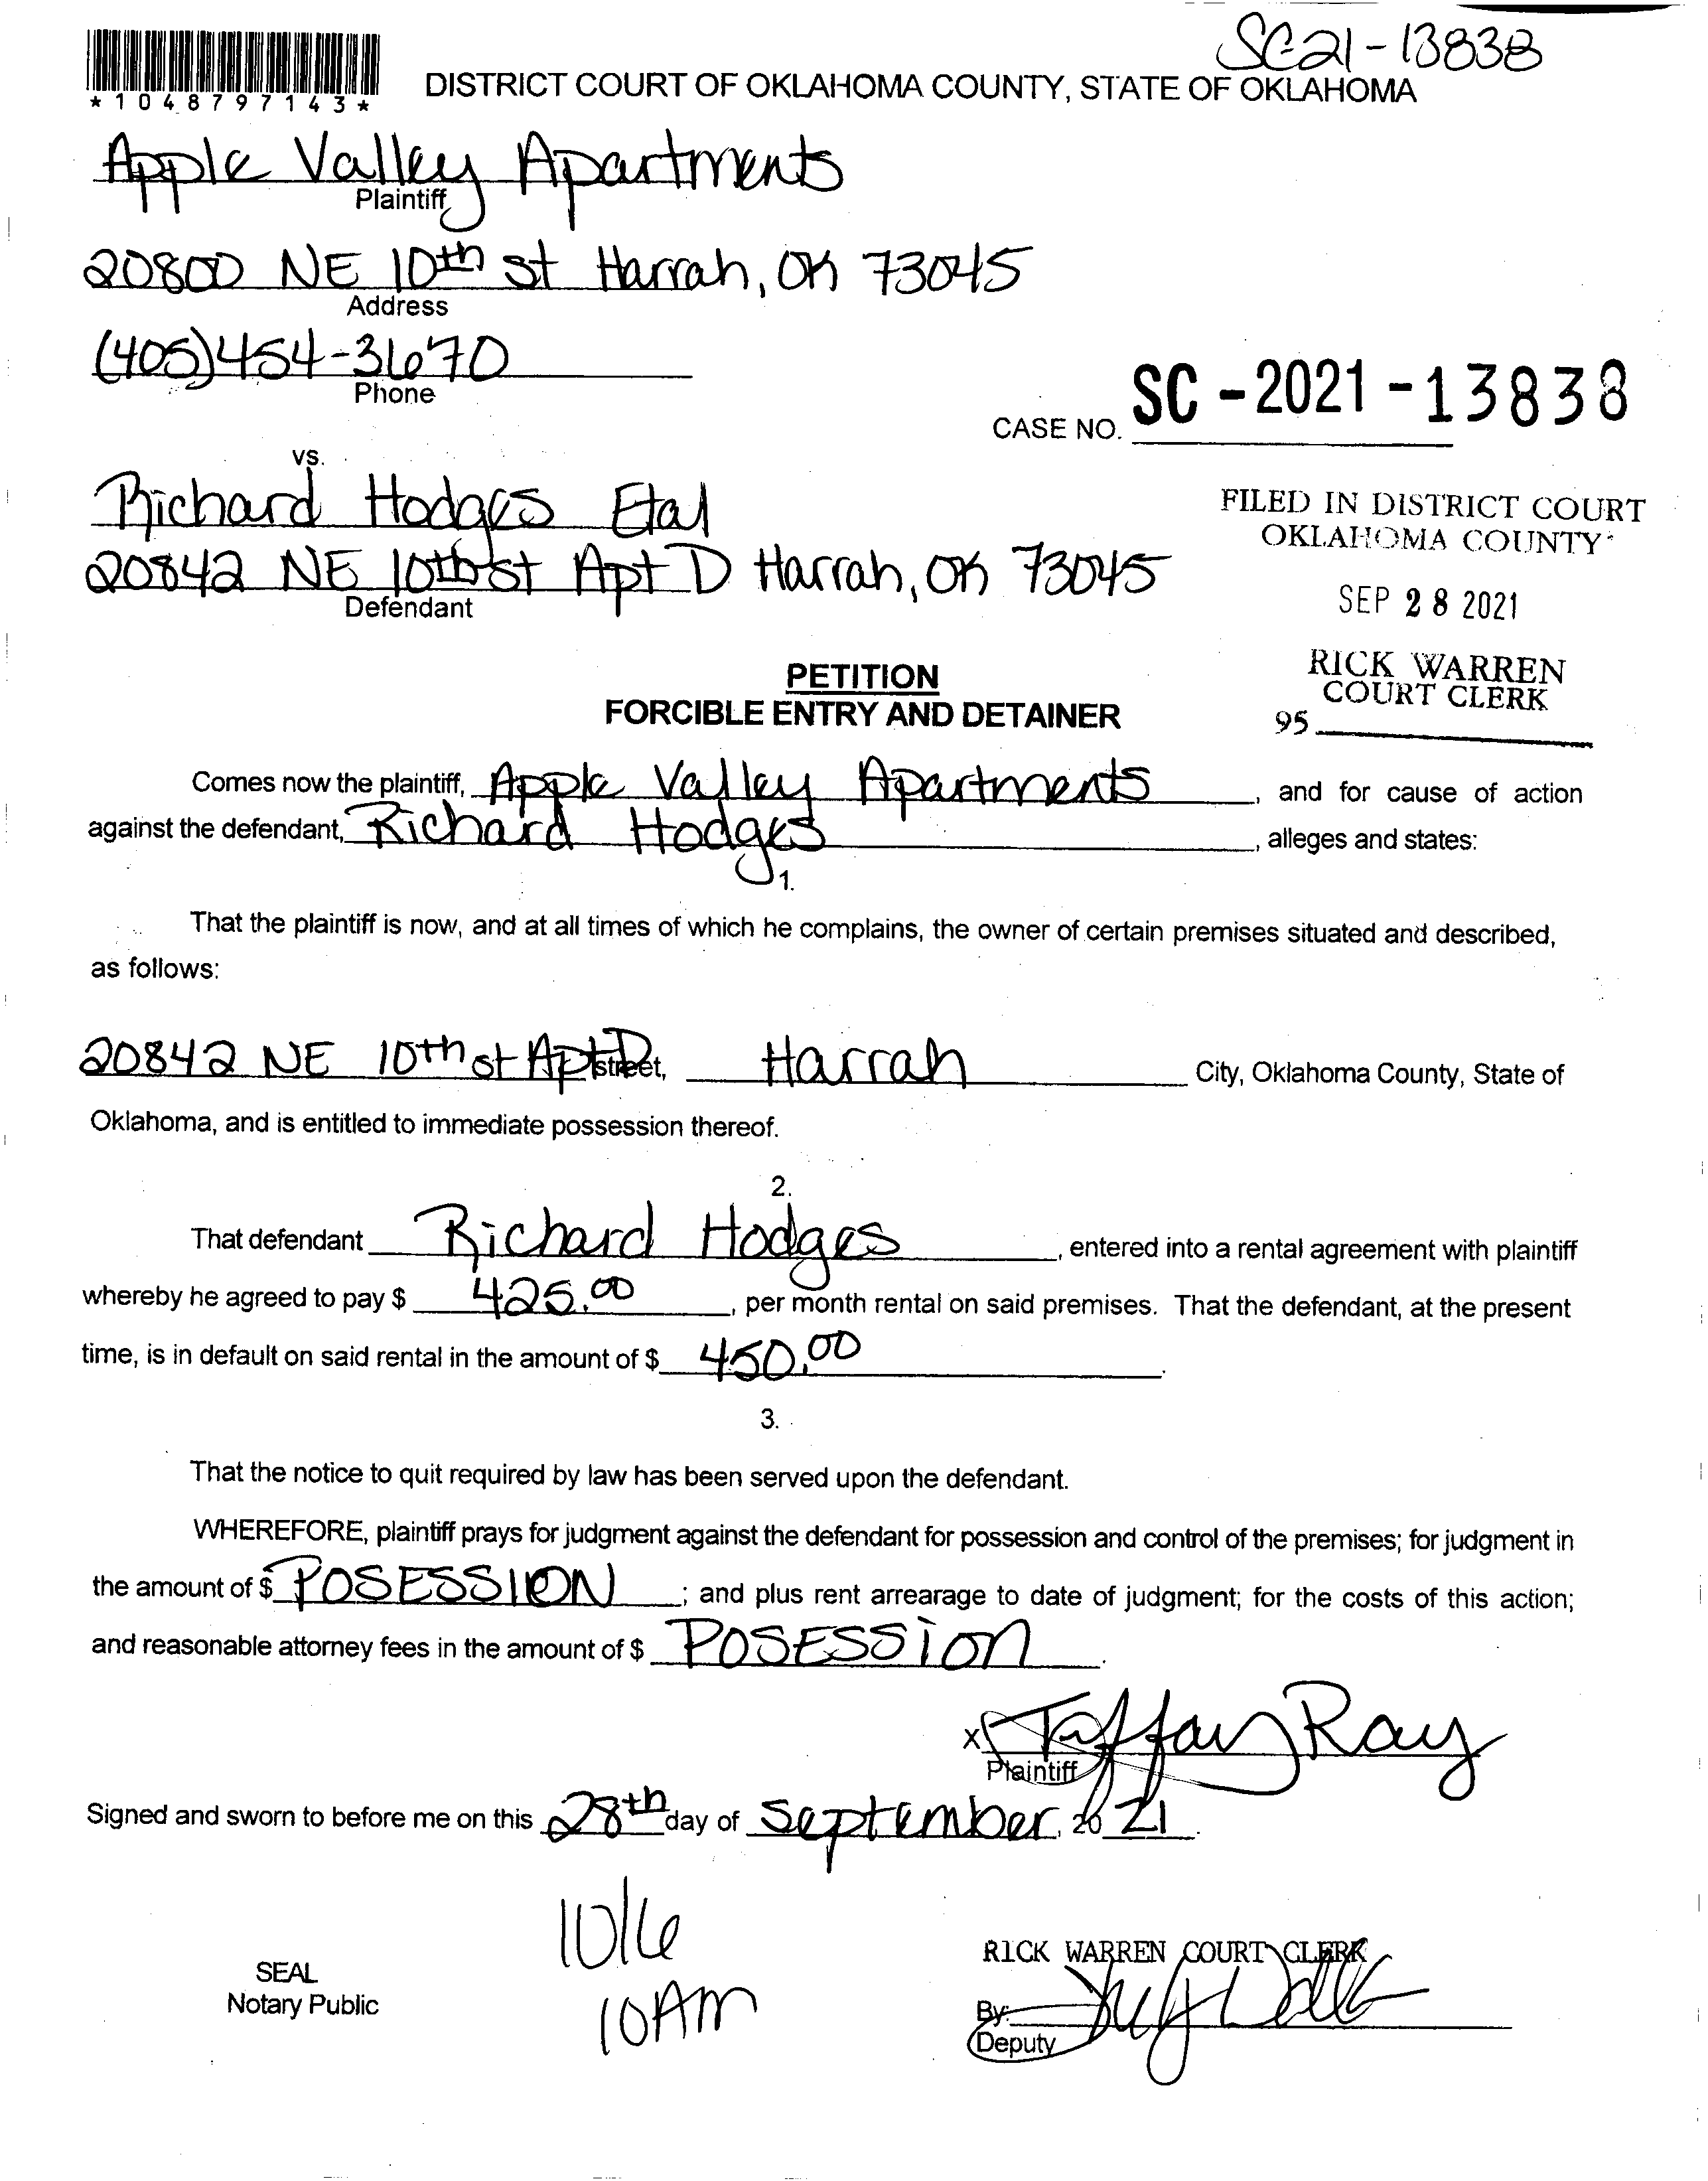 SC21-13838
*1048797143*
DISTRICT COURT OF OKLAHOMA COUNTY, STATE OF OKLAHOMA
Apple Valley Apartments
Plaintiff
20800 NE 10th st Harrah, OK 73045
Address
(405)454-3670
Phone
CASE NO. SC-2021-13838
vs.
Richard Hodges Etal
20842 NE 10th st Apt D Harrah, OK 73045
Defendant
FILED IN DISTRICT COURT
OKLAHOMA COUNTY
SEP 28 2021
RICK WARREN
COURT CLERK
95
PETITION
FORCIBLE ENTRY AND DETAINER
Comes now the plaintiff, Apple Valley Apartments, and for cause of action
against the defendant, Richard Hodges, alleges and states:
1.
That the plaintiff is now, and at all times of which he complains, the owner of certain premises situated and described,
as follows:
20842 NE 10th st Apt D street, Harrah City, Oklahoma County, State of
Oklahoma, and is entitled to immediate possession thereof.
2.
That defendant Richard Hodges, entered into a rental agreement with plaintiff
whereby he agreed to pay $ 425.00, per month rental on said premises. That the defendant, at the present
time, is in default on said rental in the amount of $ 450.00.
3.
That the notice to quit required by law has been served upon the defendant.
WHEREFORE, plaintiff prays for judgment against the defendant for possession and control of the premises; for judgment in
the amount of $ POSESSION; and plus rent arrearage to date of judgment; for the costs of this action;
and reasonable attorney fees in the amount of $ POSESSION.
x Taffany Ray
Plaintiff
Signed and sworn to before me on this 28th day of September, 20 21.
10/6
10AM
SEAL
Notary Public
RICK WARREN COURT CLERK
By:
Deputy